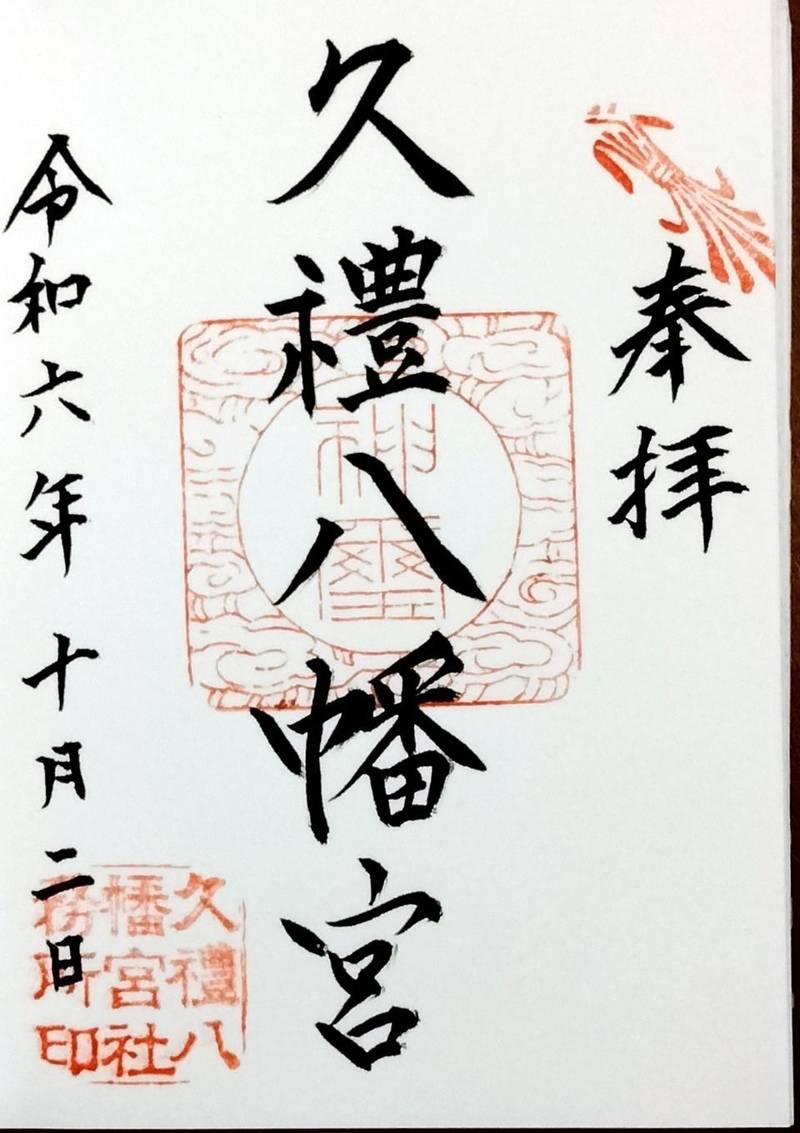 奉拝
久禮八幡宮
令和六年十月二日
久禮八
幡宮社
務所印